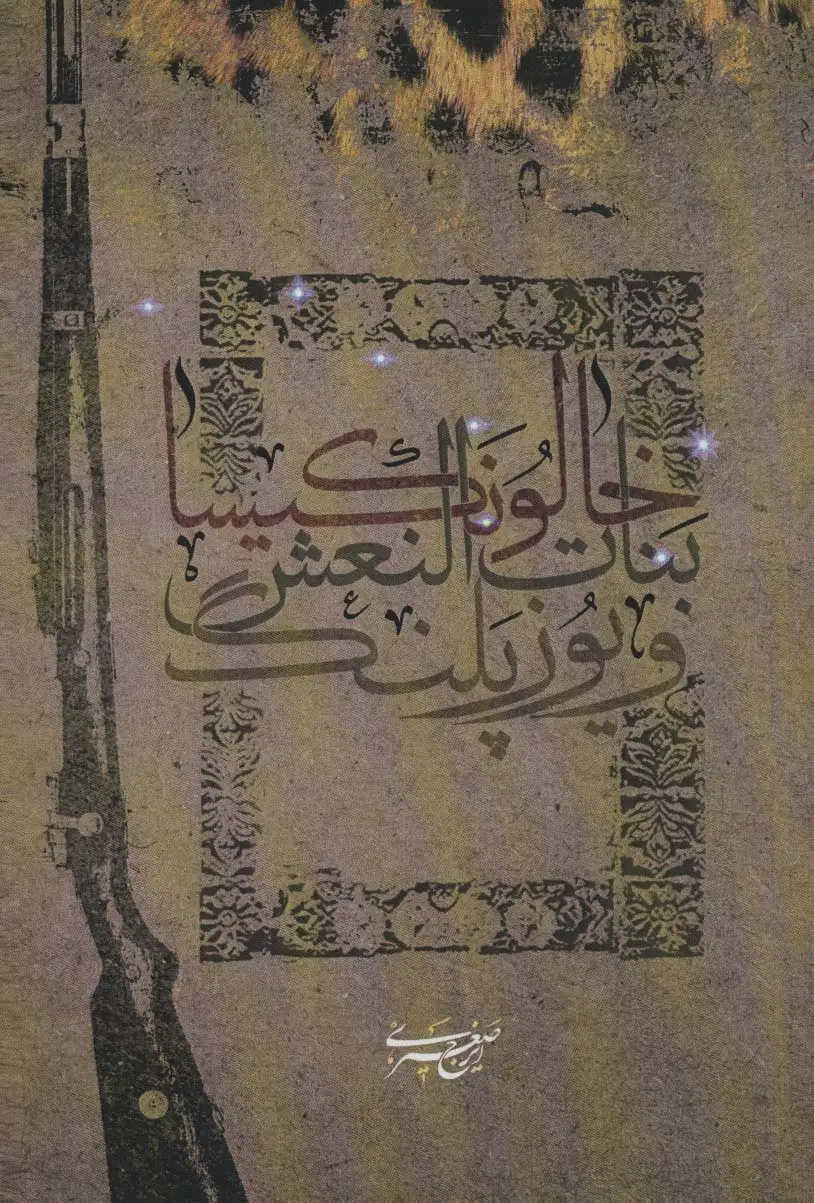 خالُو نَکیسا
بَنات النعش
و یُوزپَلنگ
ایرج صغیری